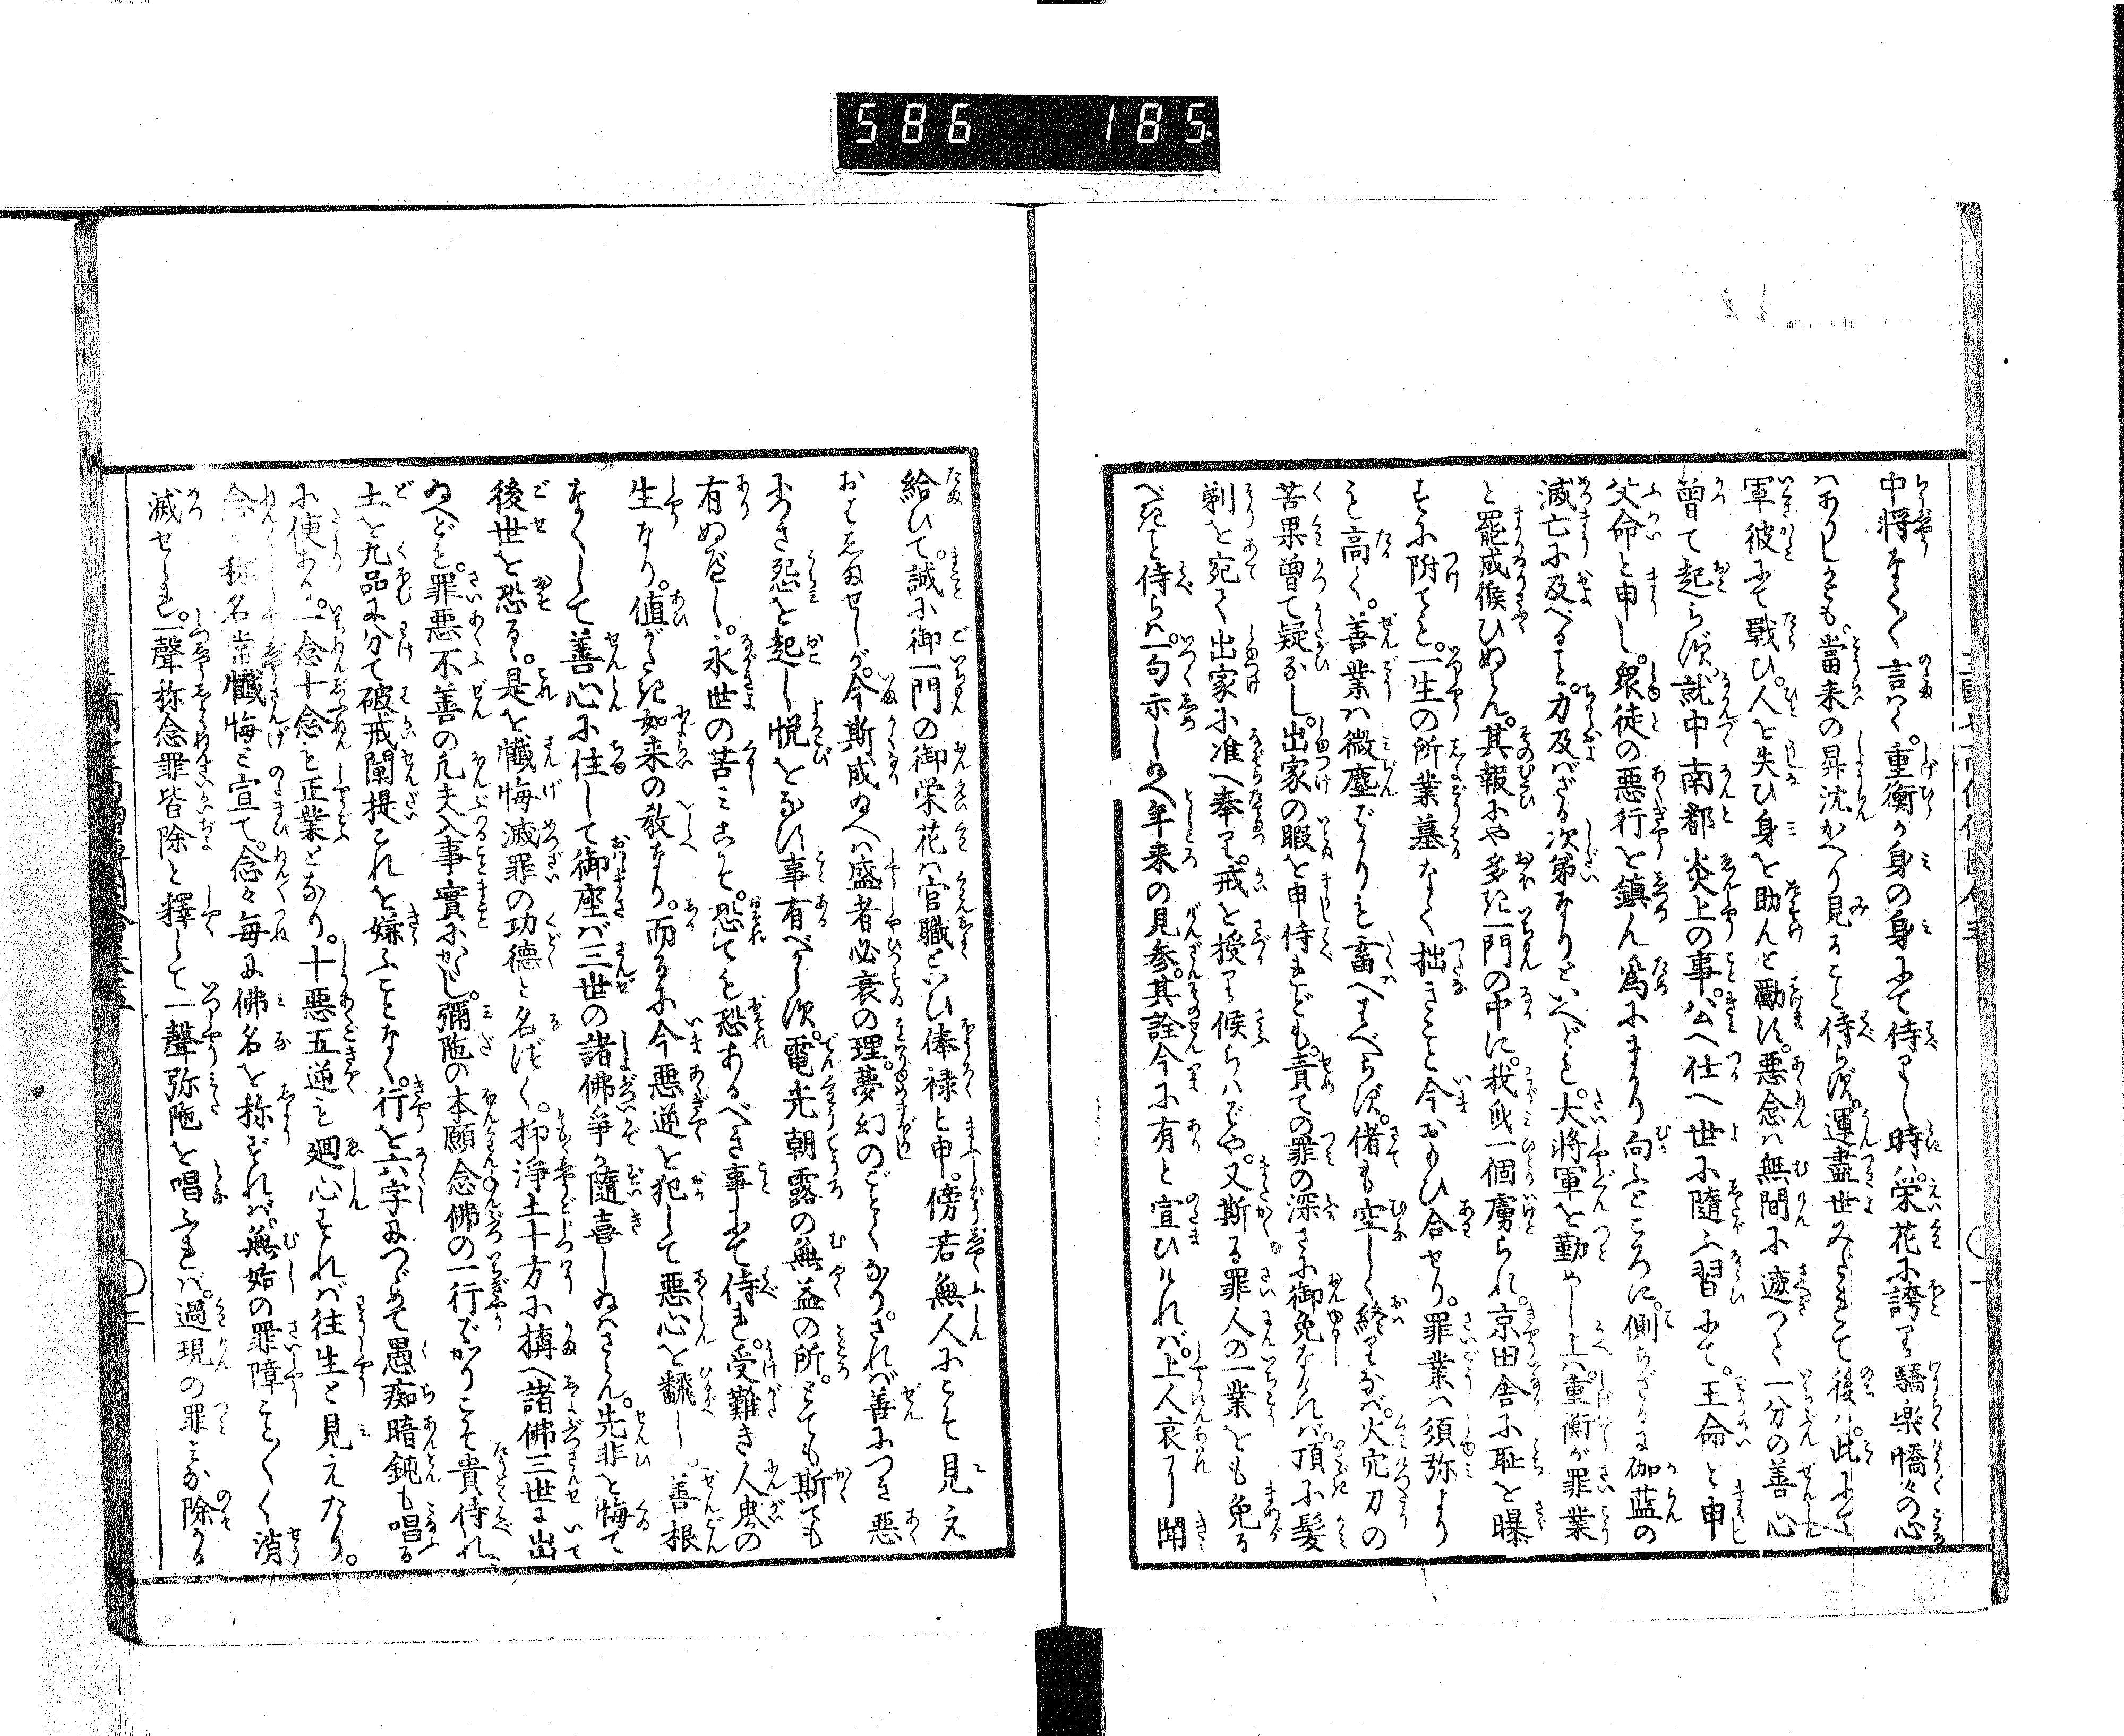 586 185
中将なく〳〵言はく。重衡が身の身にて侍りし時は。栄花に誇り驕楽憍々の心
はありしかども。當来の昇沈かへり見ること侍らず。運盡世みだれて後は。此にて
軍彼にて戰ひ。人を失ひ身を助んと勵す。悪念は無間に遮つて一分の善心
曽て起らず。就中南都炎上の事。公へ仕へ世に随ふ習にて。王命と申
父命と申し。衆徒の悪行を鎮ん為にまかり向ふところに。側らざるに伽藍の
滅亡に及べること。力及ばざる次第なりといへども。大将軍を勤めし上は。重衡が罪業
と罷成候ひぬらん。其報にや多き一門の中に。我身一個虜られ。京田舎に恥を曝
すに附ても。一生の所業墓なく拙きこと今おもひ合せり。罪業は須弥より
も高く。善業は微塵ばかりも畜へはべらず。偖も空しく終りなば。火穴刀の
苦果曽て疑なし。出家の暇を申侍れども。責ての罪の深さに御免なければ。頂に髪
剃を宛て出家に准へ奉りて。戒を授り候らはばや。又斯る罪人の一業をも免る
べきと侍らば。一句示し給へ年来の見参。其詮今に有と宣ひければ。上人哀に聞
給ひて。誠に御一門の御栄花は官職といひ俸禄と申。傍若無人にこそ見え
おはしませしが。今斯成給へば盛者必衰の理。夢幻のごとくなり。されば善につき悪
につき怨を起し悦をなす事有べからず。電光朝露の無益の所。とても斯ても
有ぬべし。永世の苦みこそ。恐ても恐あるべき事にて侍れ。受難き人界の
生なり。値がたき如来の教なり。而るに今悪逆を犯して悪心を飜し善根
なくして善心に住して御座ば三世の諸佛争か隨喜し給はざらん。先非を悔て
後世を恐る。是を懺悔滅罪の功徳と名づく。抑浄土十方に構へ諸佛三世に出
給へども。罪悪不善の凡夫入事實にかたし。彌陀の本願念佛の一行ばかりこそ貴侍れ
土を九品に分て破戒闡提これを嫌ふことなく。行を六字につゞめて愚痴暗鈍も唱る
に便あり。一念十念も正業となり。十悪五逆も廻心すれば往生と見えたり。
念々称名常懺悔と宣て。念々毎に佛名を称ずれば。無始の罪障こと〴〵く消
滅せられ。一聲称念罪皆除と釋して一聲弥陀を唱ふれば。過現の罪みな除かる